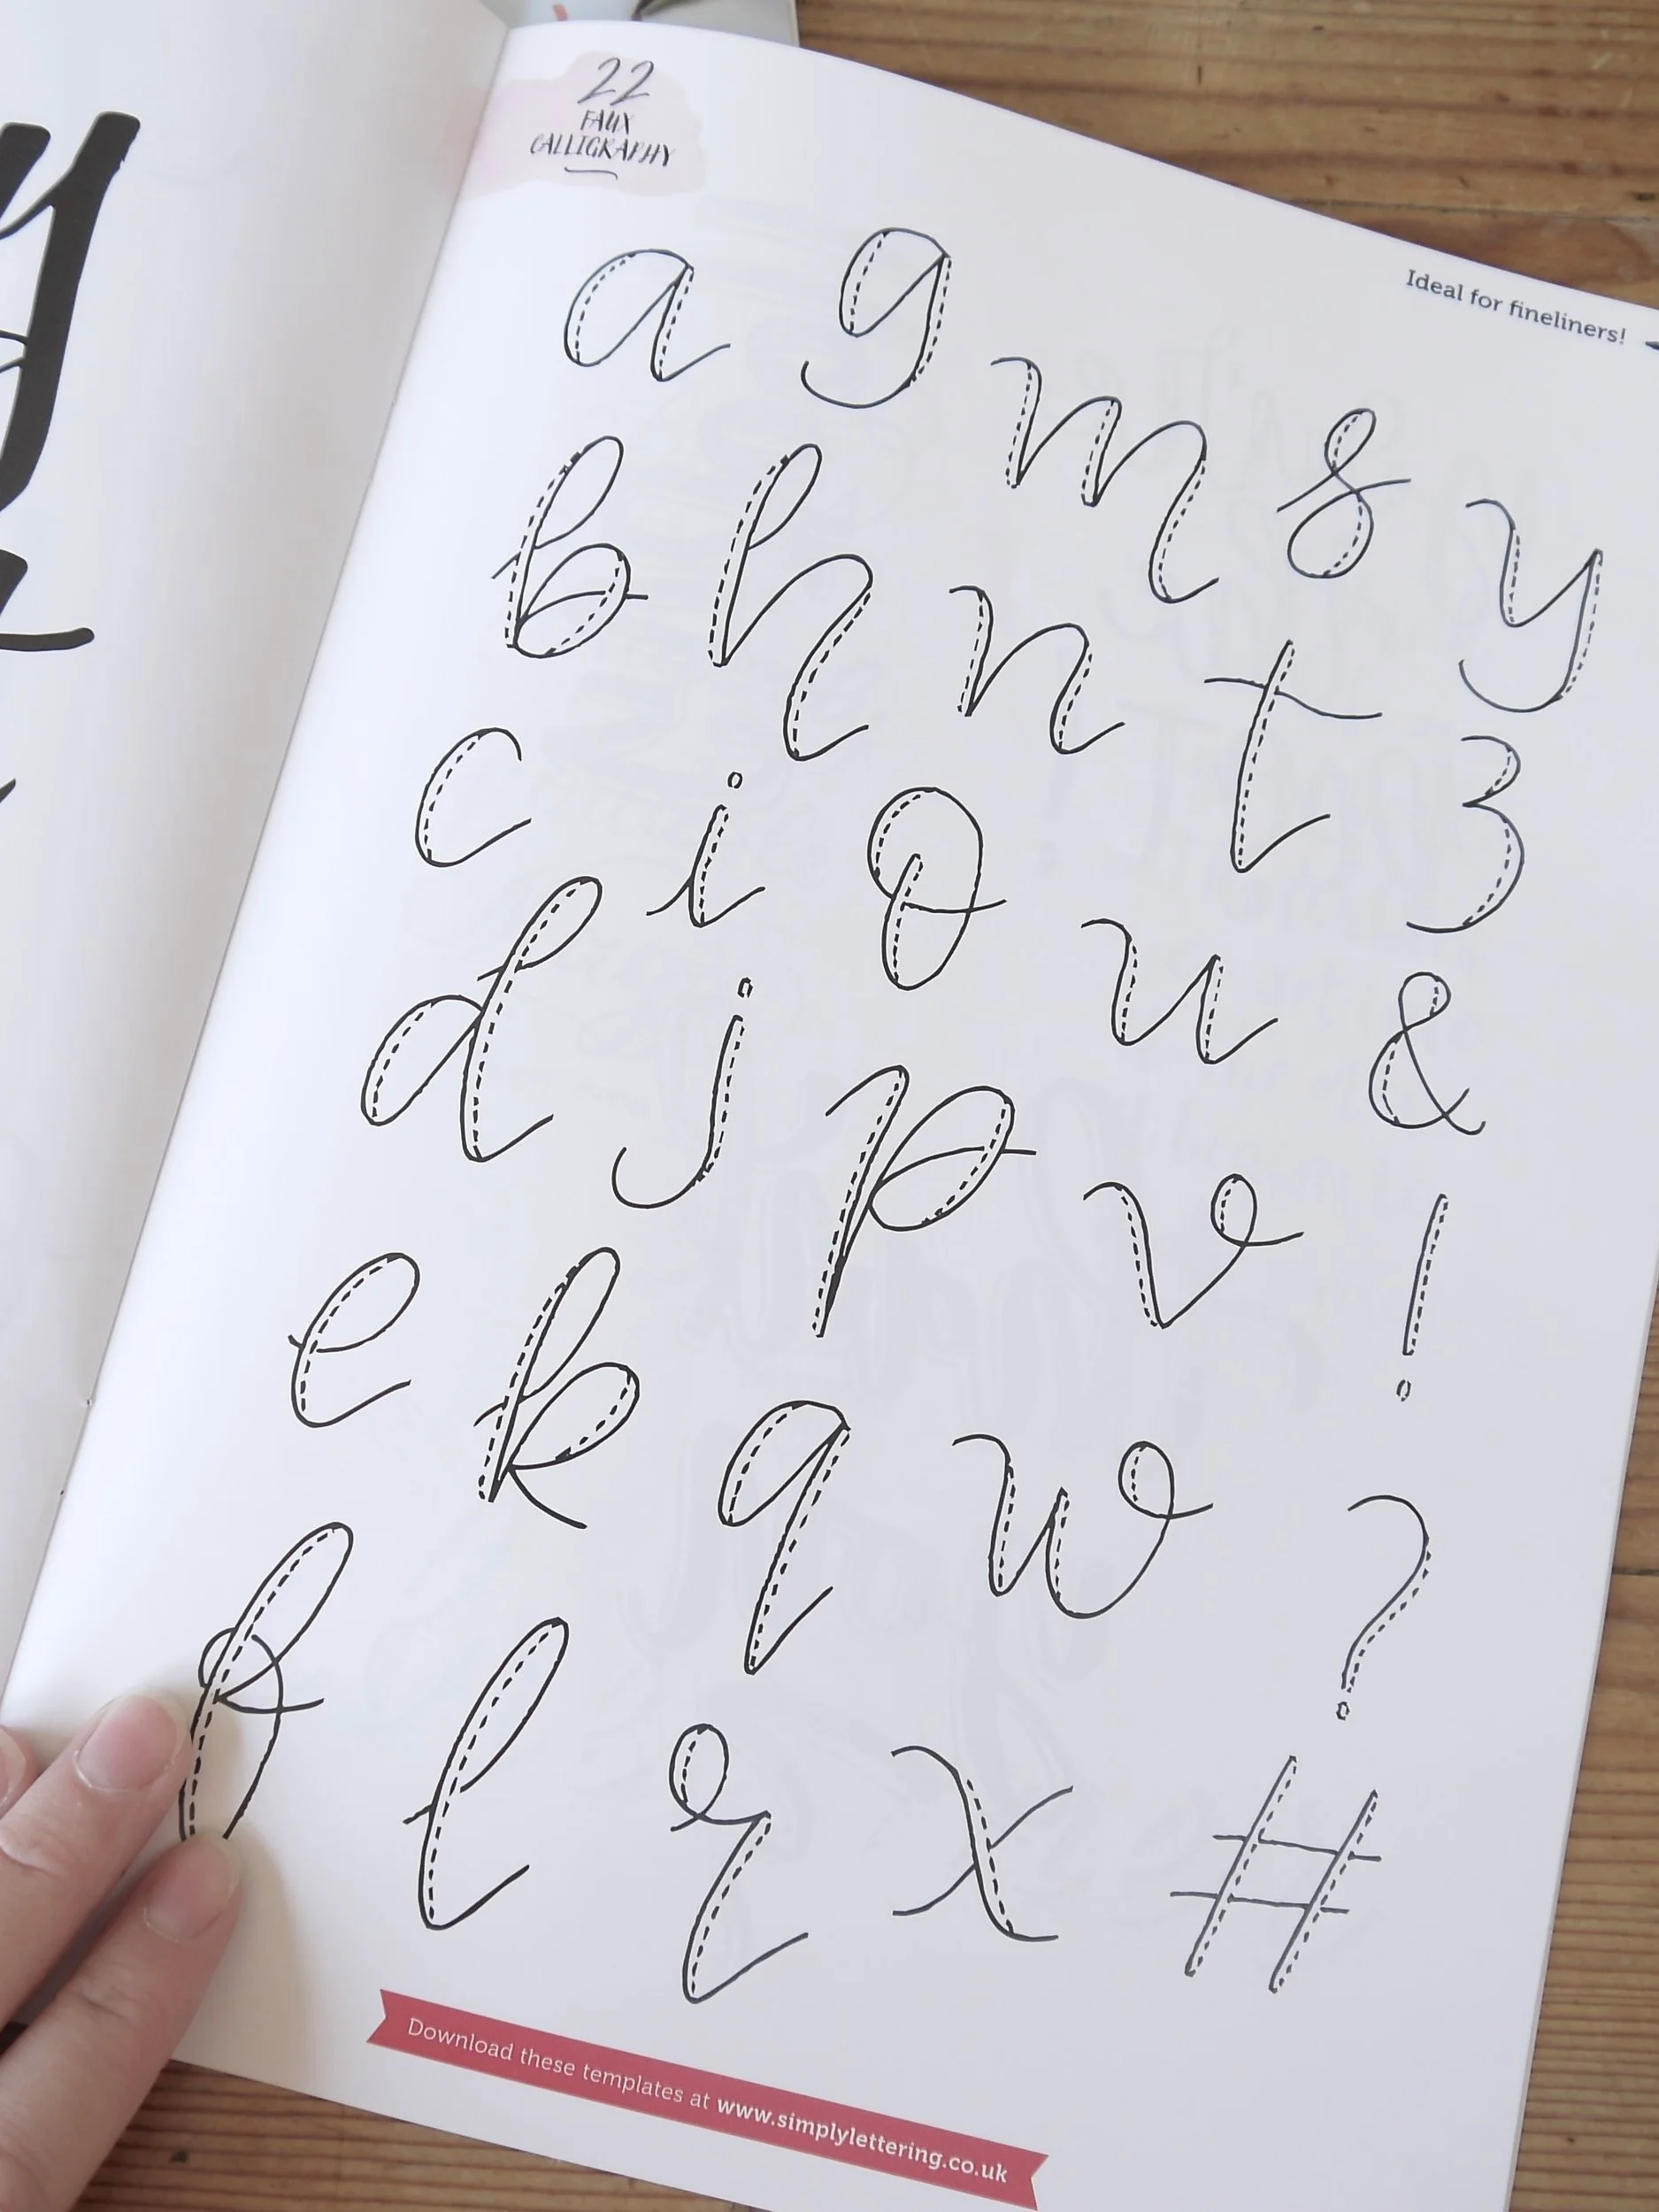 22
FAUX
CALLIGRAPHY
Ideal for fineliners!
a g m s y
b h n t z
c i o u &
d j p v !
e k q w ?
f l r x #
Download these templates at www.simplylettering.co.uk